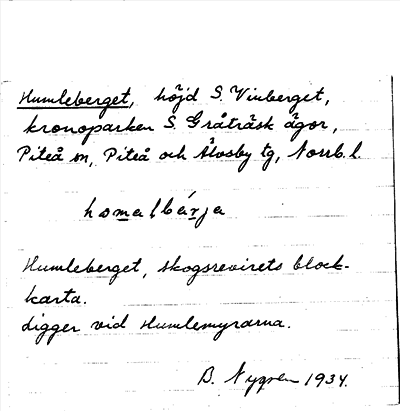 Humleberget, höjd S. Vinberget,
kronoparken S. Gråträsk ägor,
Piteå sn, Piteå och Älvsby tg, Norrb. l.
homalbärja
Humleberget, skogsrevirets block-
karta.
Ligger vid Humlemyrarna.
B. Nygren 1934.